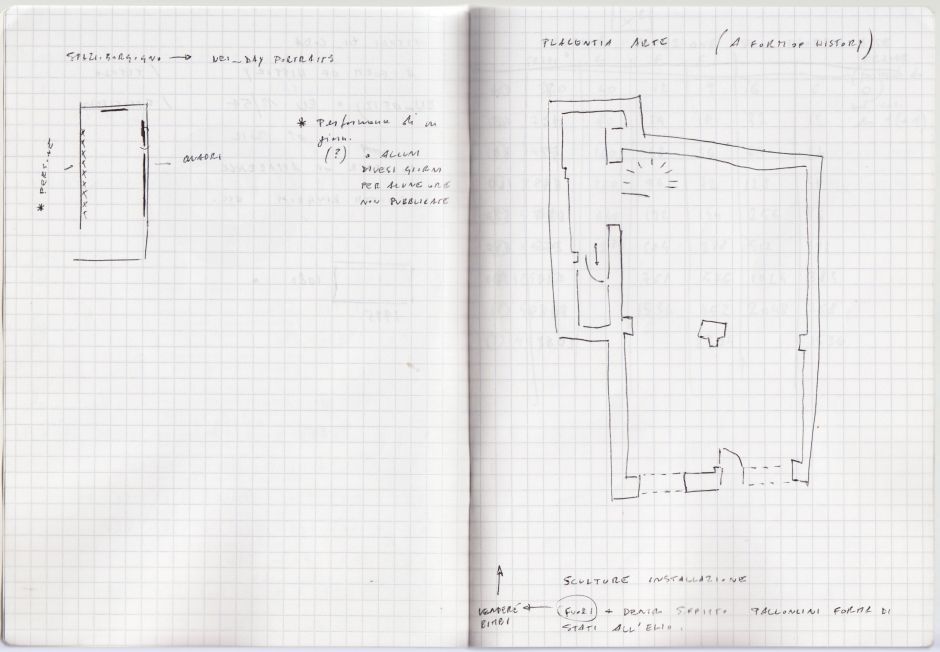 SPAZIO BORGOGNO → NEI_DAY PORTRAITS
* Performance di un
giorno.
(?) o ALCUNI
DIVERSI GIORNI
PER ALCUNE ORE
NON PUBBLICATE
QUADRI
PLACENTIA ARTE (A FORM OF HISTORY)
SCULTURE INSTALLAZIONE
FUORI + DENTRO SOFFITTO PALLONCINI FORMA DI
STATI ALL'ELIO.
BIMBI